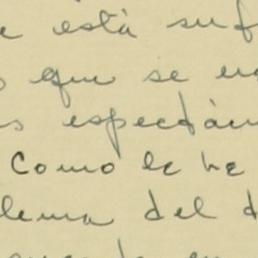 e está suf
que se
espectácu
Como le he
lema del d